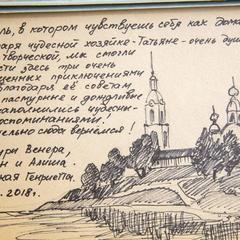 ль, в котором чувствуешь себя как дома
даря чудесной хозяйке - Татьяне - очень душ
творческой, мы смогли
сти здесь три очень
щенных приключениями
Благодаря её советам,
пасмурные и дождливые
наполнились чудесн-
споминаниями!
ельно сюда вернёмся!
ури Венера,
н и Алиша.
кая Генриетта.
. 2018г.